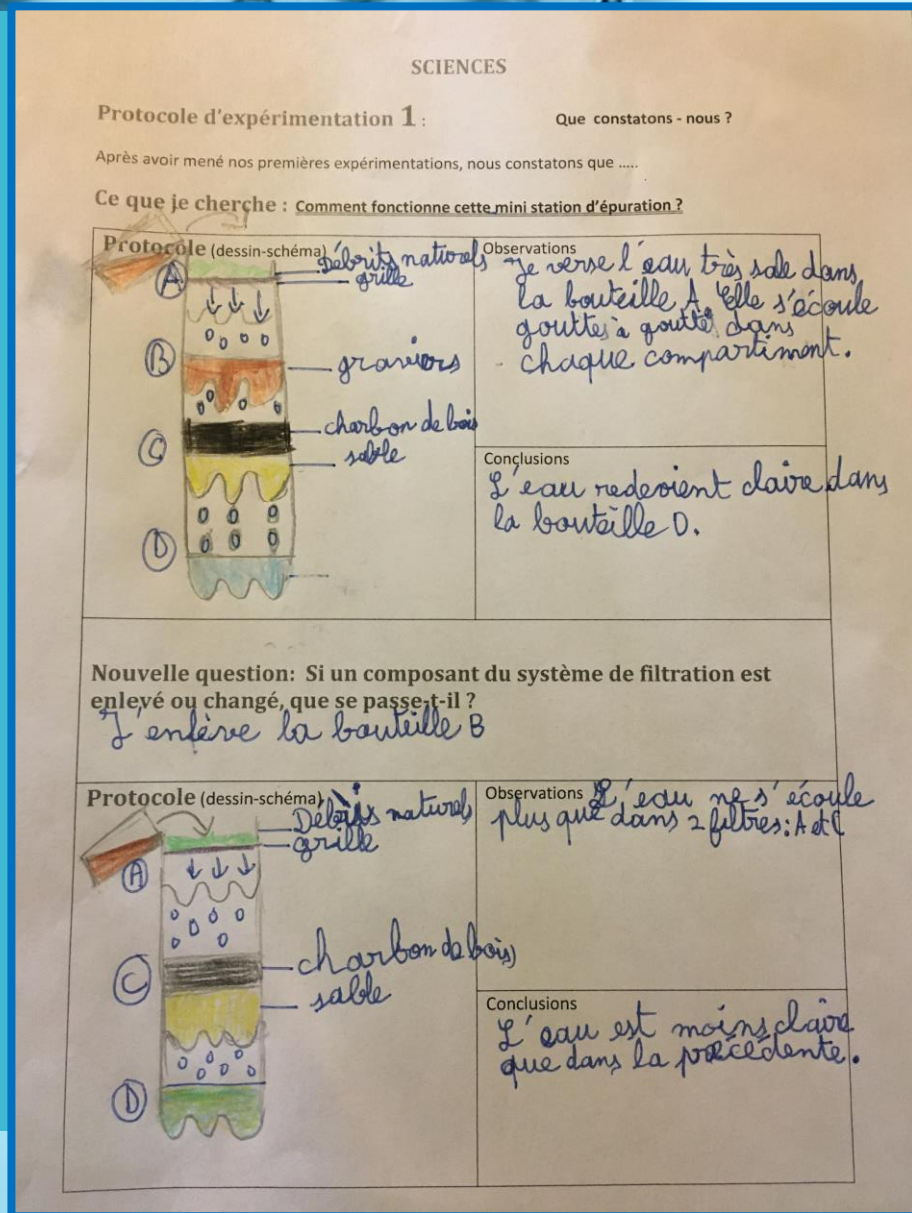 SCIENCES
Protocole d'expérimentation 1 :
Que constatons - nous ?
Après avoir mené nos premières expérimentations, nous constatons que .....
Ce que je cherche : Comment fonctionne cette mini station d'épuration ?
Protocole (dessin-schéma)
Débrits naturels
grille
A
B
graviers
charbon de bois
C
sable
D
Observations
Je verse l'eau très sale dans
la bouteille A. Elle s'écoule
gouttes à gouttes dans
chaque compartiment.
Conclusions
L'eau redevient claire dans
la bouteille D.
Nouvelle question: Si un composant du système de filtration est
enlevé ou changé, que se passe-t-il ?
J'enlève la bouteille B
Protocole (dessin-schéma)
Débris naturels
grille
A
charbon de bois
C
sable
D
Observations L'eau ne s'écoule
plus que dans 2 filtres : A et C
Conclusions
L'eau est moins claire
que dans la précédente.